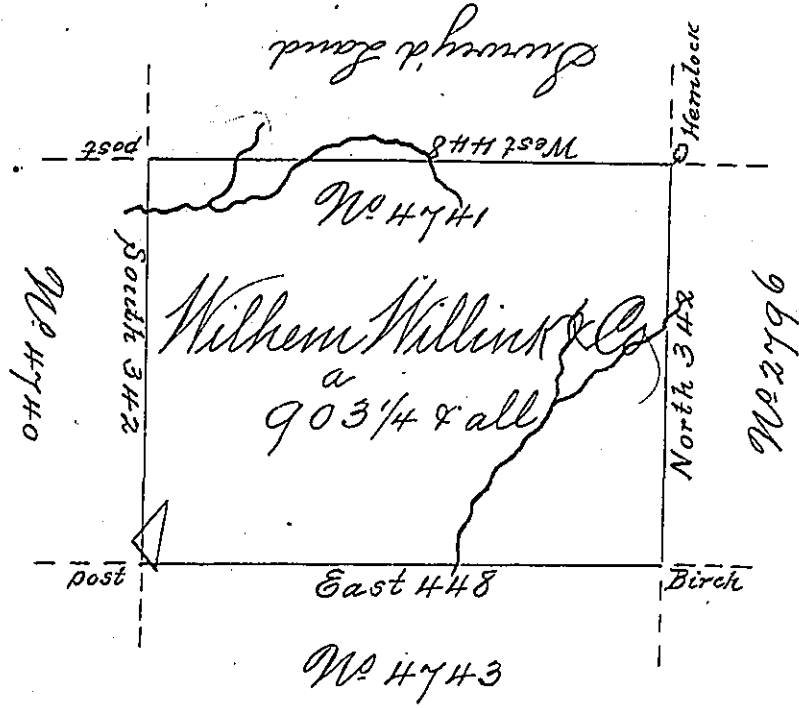 Survey'd Land
Hemlock
post
West 448
No 4741
South 342
No 4740
Wilhem Willink & Co
a
903 1/4 & all
North 342
No 2796
post
East 448
Birch
No 4743